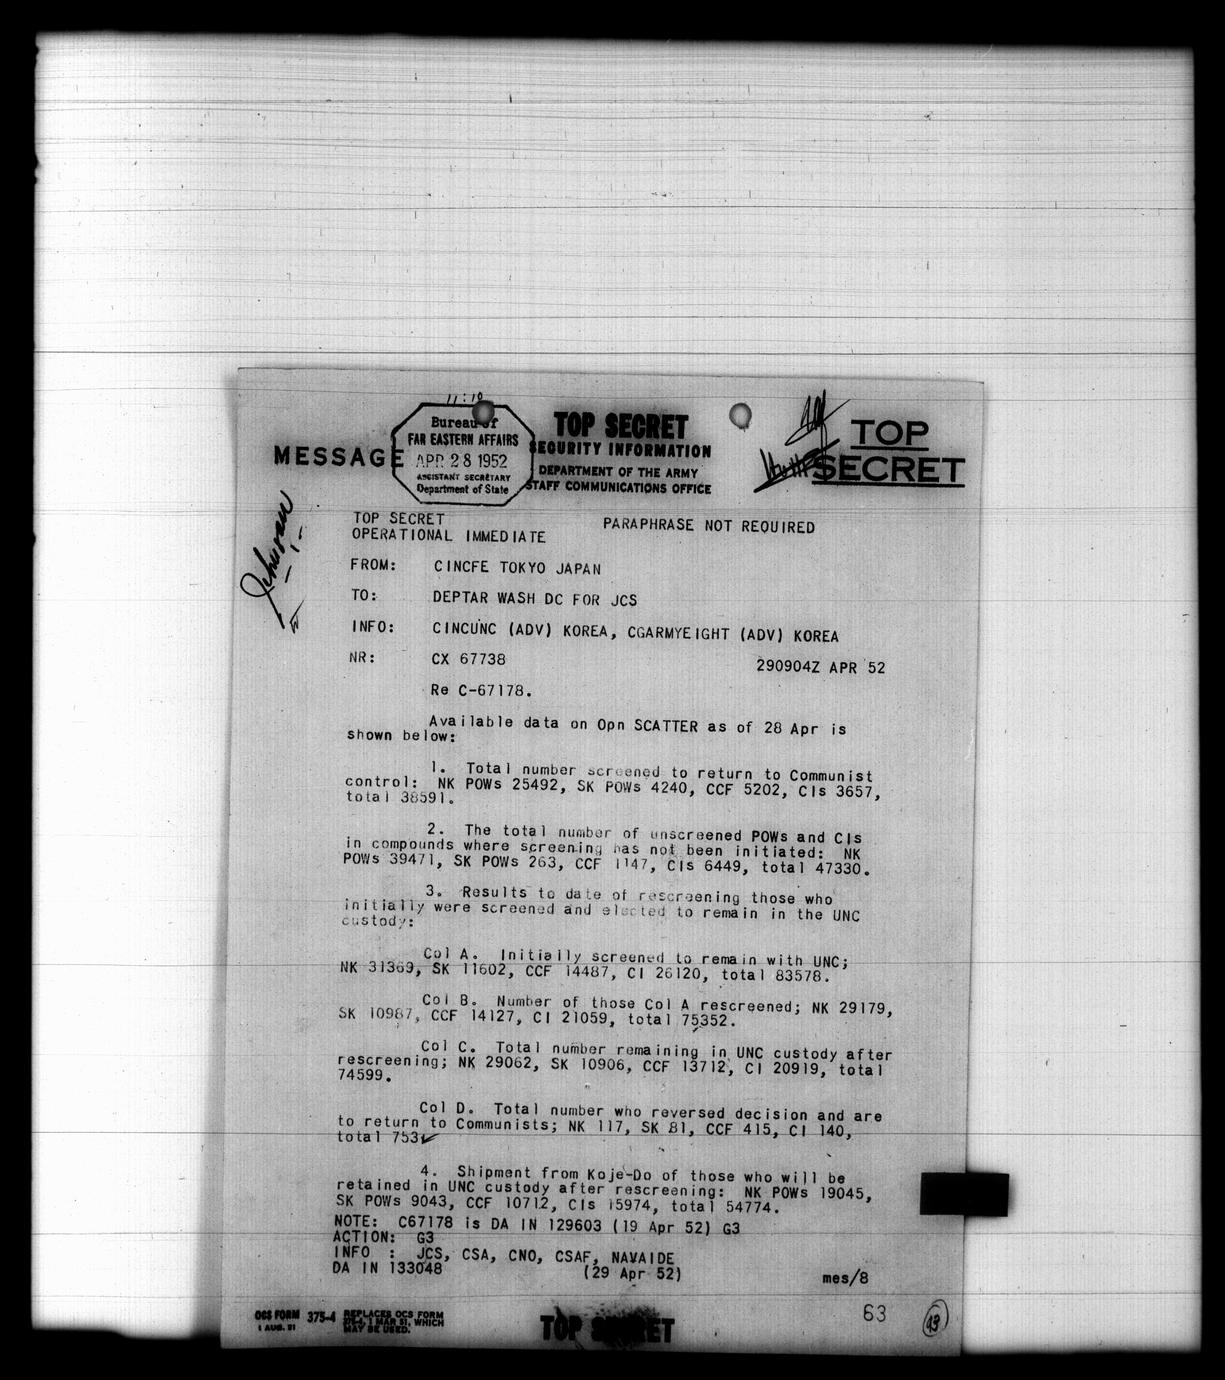 11:10
Bureau of
FAR EASTERN AFFAIRS
APR 28 1952
ASSISTANT SECRETARY
Department of State
MESSAGE
TOP SECRET
SECURITY INFORMATION
DEPARTMENT OF THE ARMY
STAFF COMMUNICATIONS OFFICE
TOP
SECRET
TOP SECRET PARAPHRASE NOT REQUIRED
OPERATIONAL IMMEDIATE
FROM: CINCFE TOKYO JAPAN
TO: DEPTAR WASH DC FOR JCS
INFO: CINCUNC (ADV) KOREA, CGARMYEIGHT (ADV) KOREA
NR: CX 67738 290904Z APR 52
Re C-67178.
Available data on Opn SCATTER as of 28 Apr is
shown below:
1. Total number screened to return to Communist
control: NK POWs 25492, SK POWs 4240, CCF 5202, CIs 3657,
total 38591.
2. The total number of unscreened POWs and CIs
in compounds where screening has not been initiated: NK
POWs 39471, SK POWs 263, CCF 1147, CIs 6449, total 47330.
3. Results to date of rescreening those who
initially were screened and elected to remain in the UNC
custody:
Col A. Initially screened to remain with UNC;
NK 31369, SK 11602, CCF 14487, CI 26120, total 83578.
Col B. Number of those Col A rescreened; NK 29179,
SK 10987, CCF 14127, CI 21059, total 75352.
Col C. Total number remaining in UNC custody after
rescreening; NK 29062, SK 10906, CCF 13712, CI 20919, total
74599.
Col D. Total number who reversed decision and are
to return to Communists; NK 117, SK 81, CCF 415, CI 140,
total 753
4. Shipment from Koje-Do of those who will be
retained in UNC custody after rescreening: NK POWs 19045,
SK POWs 9043, CCF 10712, CIs 15974, total 54774.
NOTE: C67178 is DA IN 129603 (19 Apr 52) G3
ACTION: G3
INFO : JCS, CSA, CNO, CSAF, NAVAIDE
DA IN 133048 (29 Apr 52) mes/8
OCS FORM 375-4 REPLACES OCS FORM
1 AUG. 51 375-4, 1 MAR 51, WHICH
MAY BE USED.
TOP SECRET
63